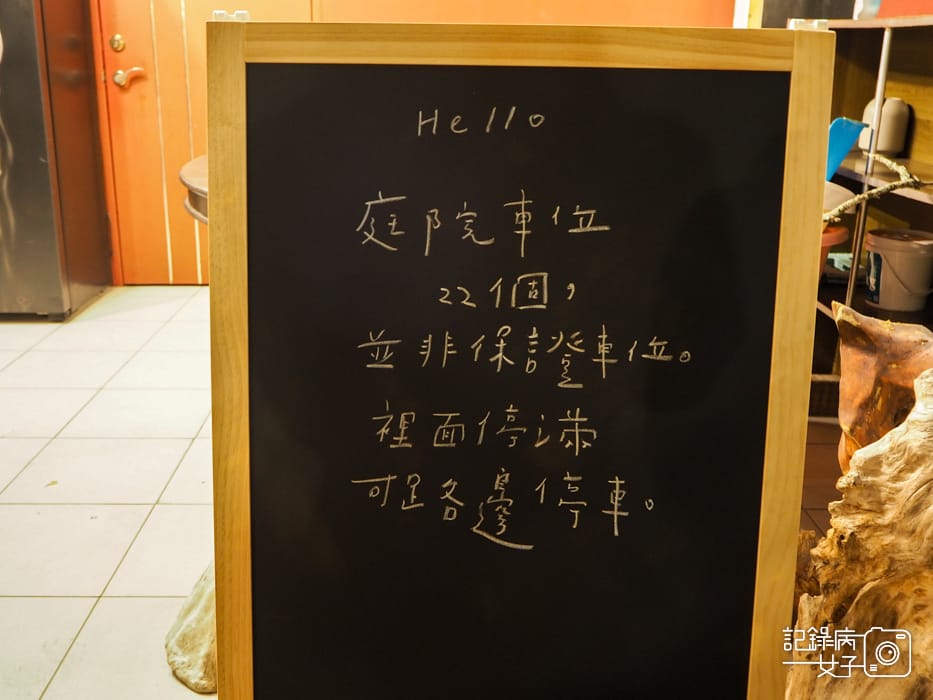 Hello
庭院車位
22個，
並非保證車位。
裡面停滿
可足各邊停車。
記錄病
女子